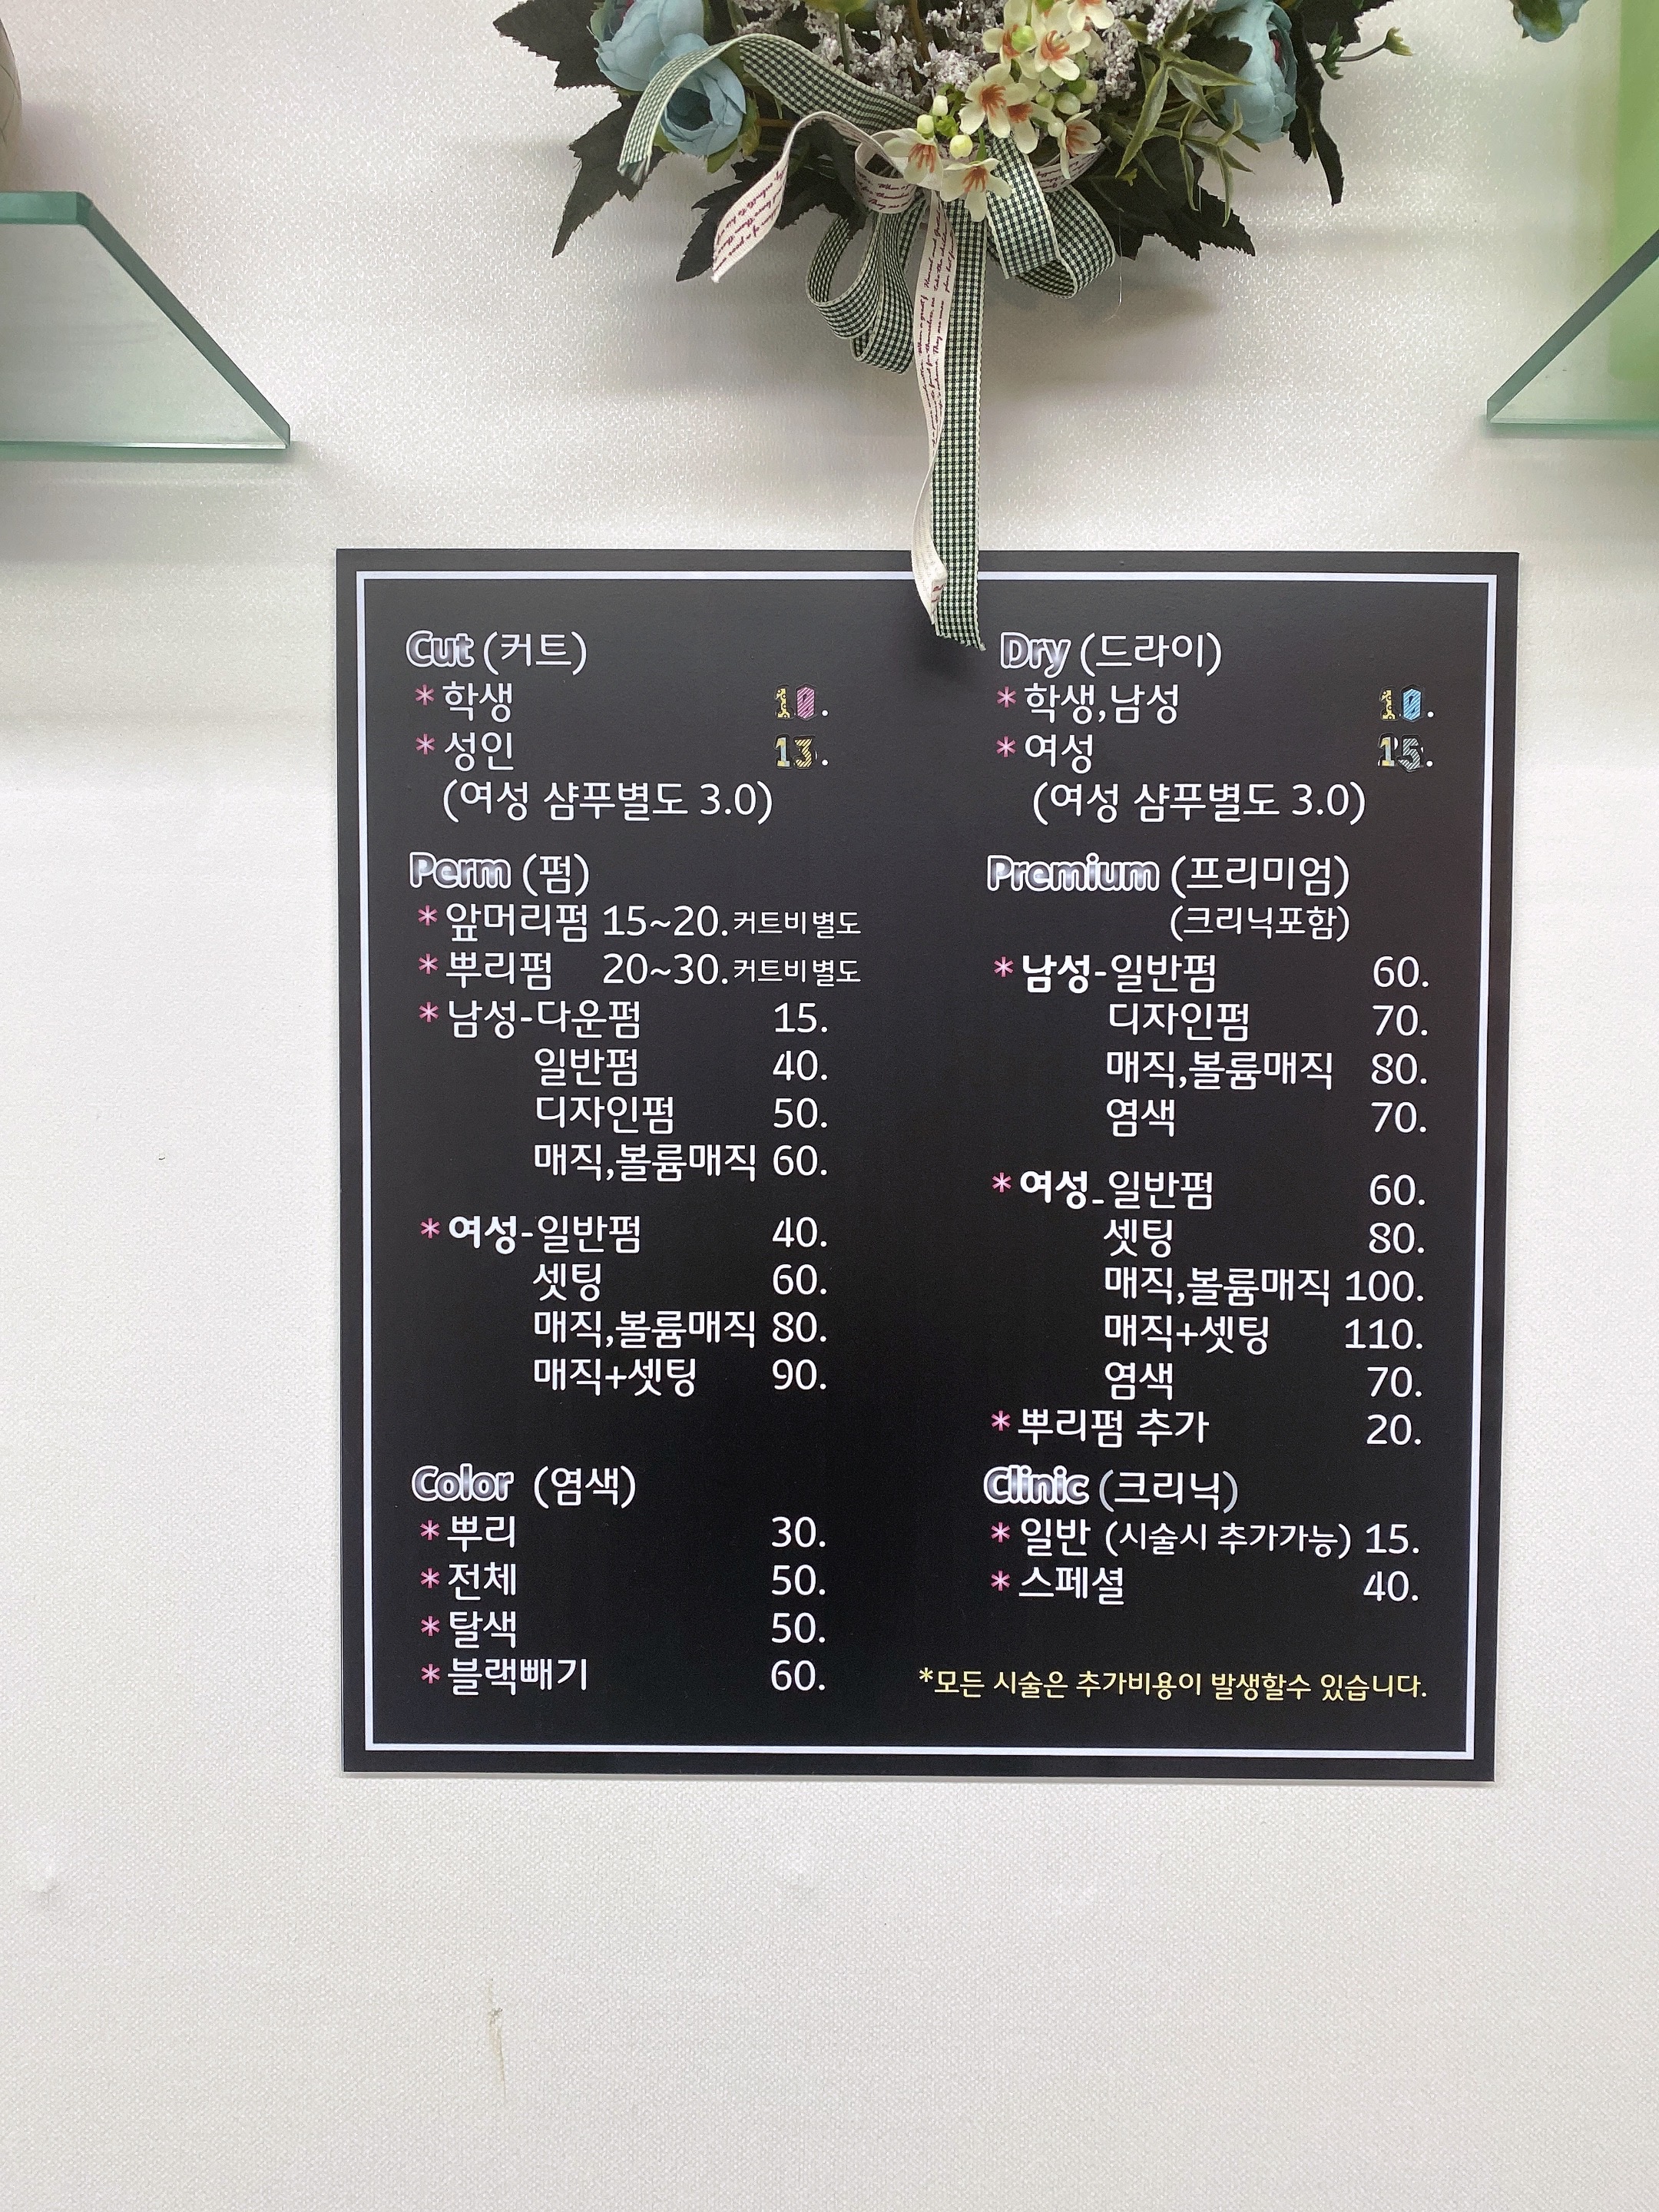 Cut (커트)
*학생 10.
*성인 13.
(여성 샴푸별도 3.0)
Perm (펌)
*앞머리펌 15~20.커트비별도
*뿌리펌 20~30.커트비별도
*남성-다운펌 15.
일반펌 40.
디자인펌 50.
매직,볼륨매직 60.
*여성-일반펌 40.
셋팅 60.
매직,볼륨매직 80.
매직+셋팅 90.
Color (염색)
*뿌리 30.
*전체 50.
*탈색 50.
*블랙빼기 60.
Dry (드라이)
*학생,남성 10.
*여성 15.
(여성 샴푸별도 3.0)
Premium (프리미엄)
(크리닉포함)
*남성-일반펌 60.
디자인펌 70.
매직,볼륨매직 80.
염색 70.
*여성-일반펌 60.
셋팅 80.
매직,볼륨매직 100.
매직+셋팅 110.
염색 70.
*뿌리펌 추가 20.
Clinic (크리닉)
*일반 (시술시 추가가능) 15.
*스페셜 40.
*모든 시술은 추가비용이 발생할수 있습니다.